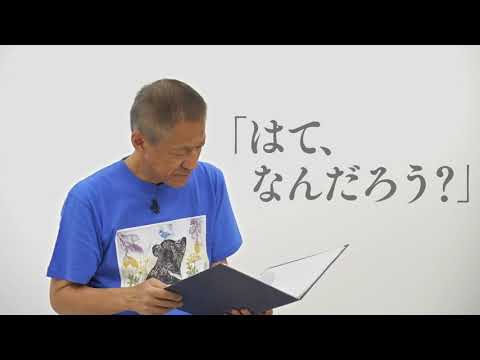 「はて、
なんだろう?」